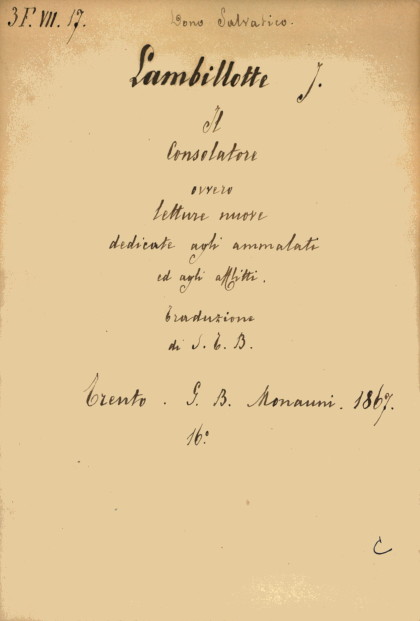 3 F. VII. 17. Dono Salvatico.
Lambillotte J.
Il
Consolatore
ovvero
letture nuove
dedicate agli ammalati
ed agli afflitti.
Traduzione
di S. T. B.
Trento. G. B. Monauni. 1867.
16°
C